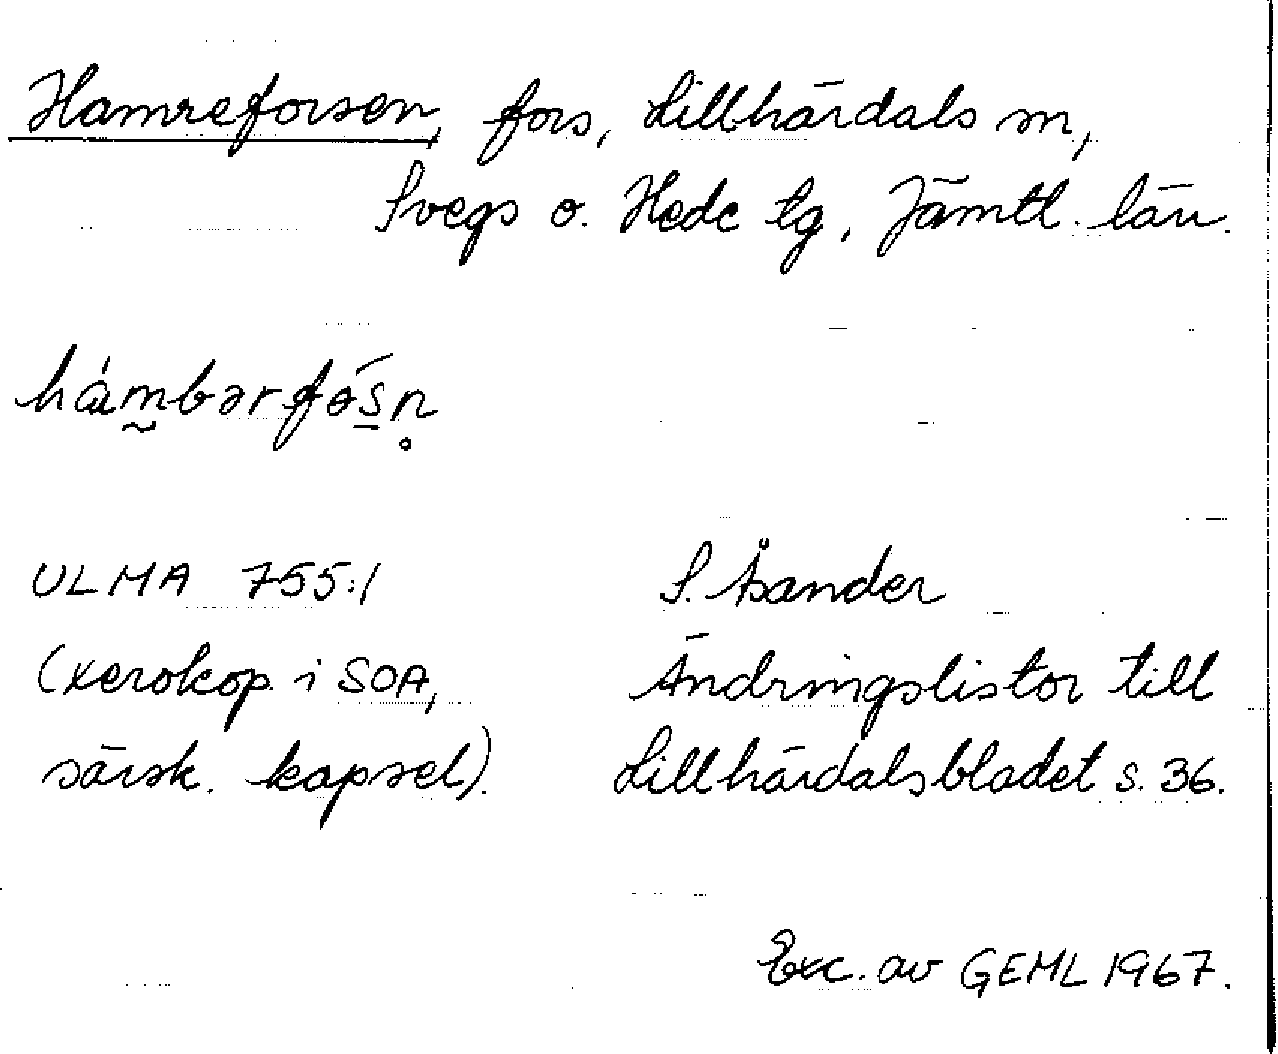 Hamreforsen, fors, Lillhärdals sn,
Svegs o. Hede tg, Jämtl. län.
hámbərfós̲n̥
ULMA 755:1 S. Åsander
(xerokop. i SOA, Ändringslistor till
särsk. kapsel). Lillhärdalsbladet s. 36.
Exc. av GEML 1967.